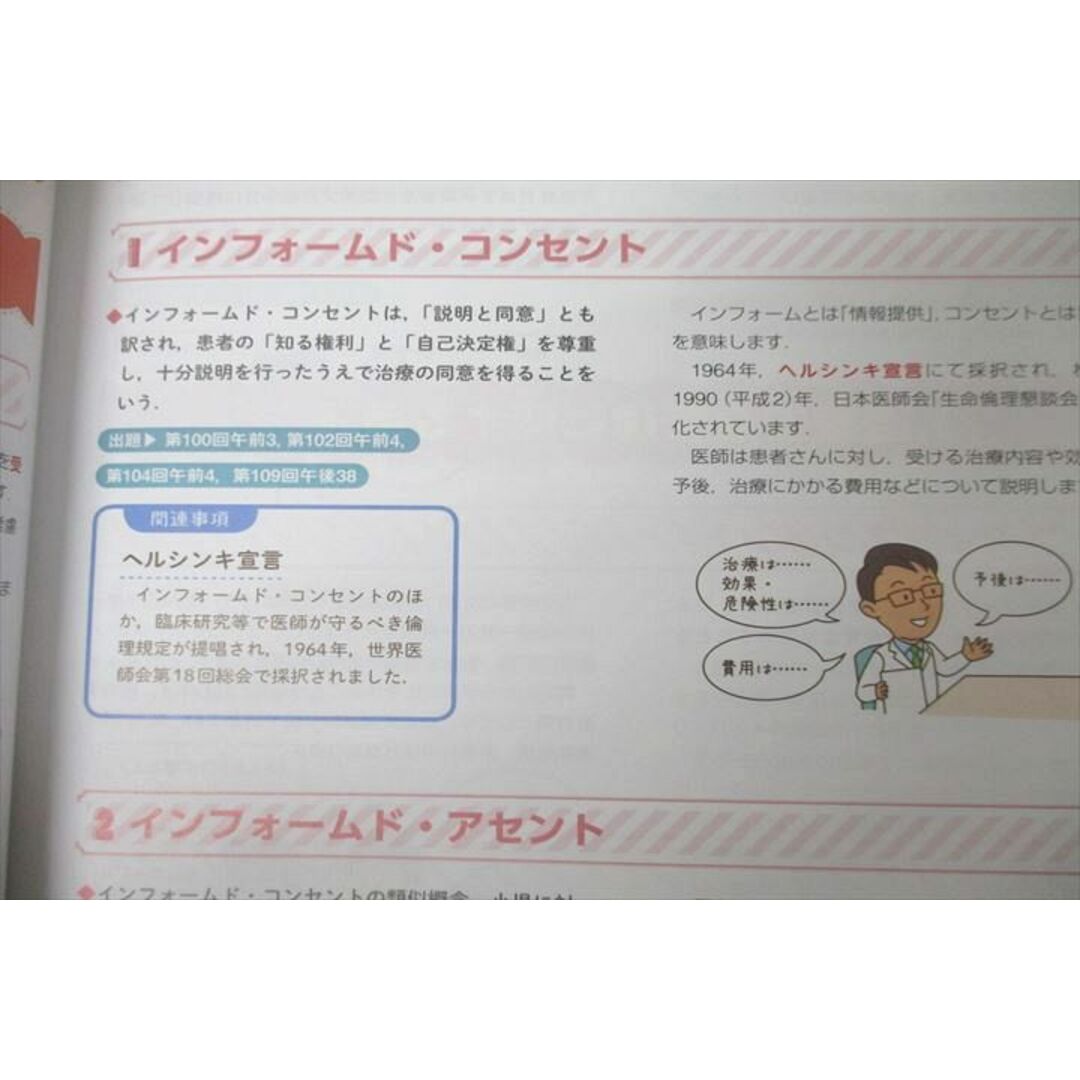 1 インフォームド・コンセント
◆インフォームド・コンセントは,「説明と同意」とも
訳され,患者の「知る権利」と「自己決定権」を尊重
し,十分説明を行ったうえで治療の同意を得ることを
いう.
出題▶ 第100回午前3, 第102回午前4,
第104回午前4, 第109回午後38
関連事項
ヘルシンキ宣言
インフォームド・コンセントのほ
か,臨床研究等で医師が守るべき倫
理規定が提唱され,1964年,世界医
師会第18回総会で採択されました.
インフォームとは「情報提供」,コンセントとは
を意味します.
1964年,ヘルシンキ宣言にて採択され,
1990(平成2)年,日本医師会「生命倫理懇談会
化されています.
医師は患者さんに対し,受ける治療内容や効
予後,治療にかかる費用などについて説明しま
治療は……
効果・
危険性は……
予後は……
費用は……
2 インフォームド・アセント
◆インフォームド・コンセントの類似概念 小児に対